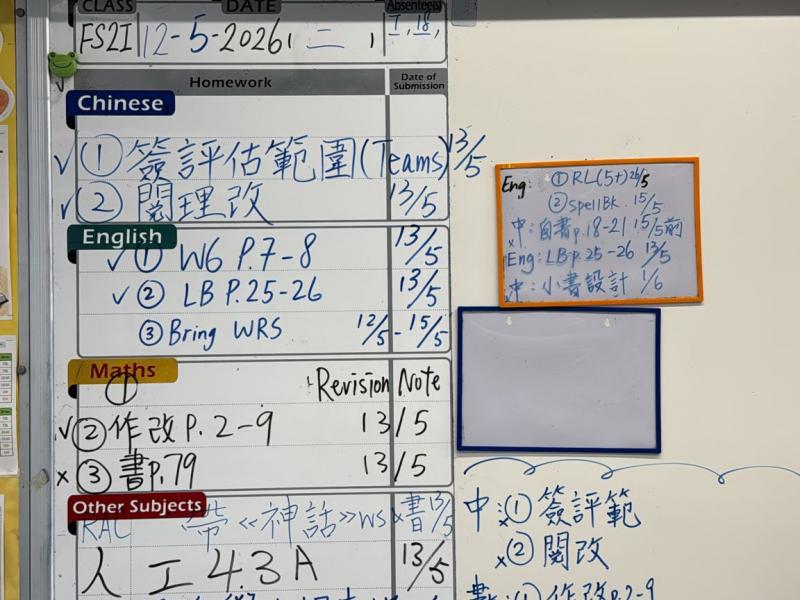 CLASS DATE Absentee(s)
FS2I 12-5-2026, 二, 1, 18,
Homework Date of Submission
Chinese
✓ ① 簽評估範圍(Teams) 13/5
✓ ② 閱理改 13/5
English
✓ ① W6 P.7-8 13/5
✓ ② LB P.25-26 13/5
③ Bring WRS 12/5-15/5
Maths
① Revision Note
✓ ② 作改P.2-9 13/5
x ③ 書P.79 13/5
Other Subjects
RAC 帶《神話》WS x書 13/5
人工4.3A 13/5
Eng: ① RL(5+) 26/5
② SpellBk. 15/5
x中: 自書p.18-21 15/5前
Eng: LB p.25-26 13/5
x中: 小書設計 1/6
中: x① 簽評範
x② 閱改
數: ① 作改p.2-9